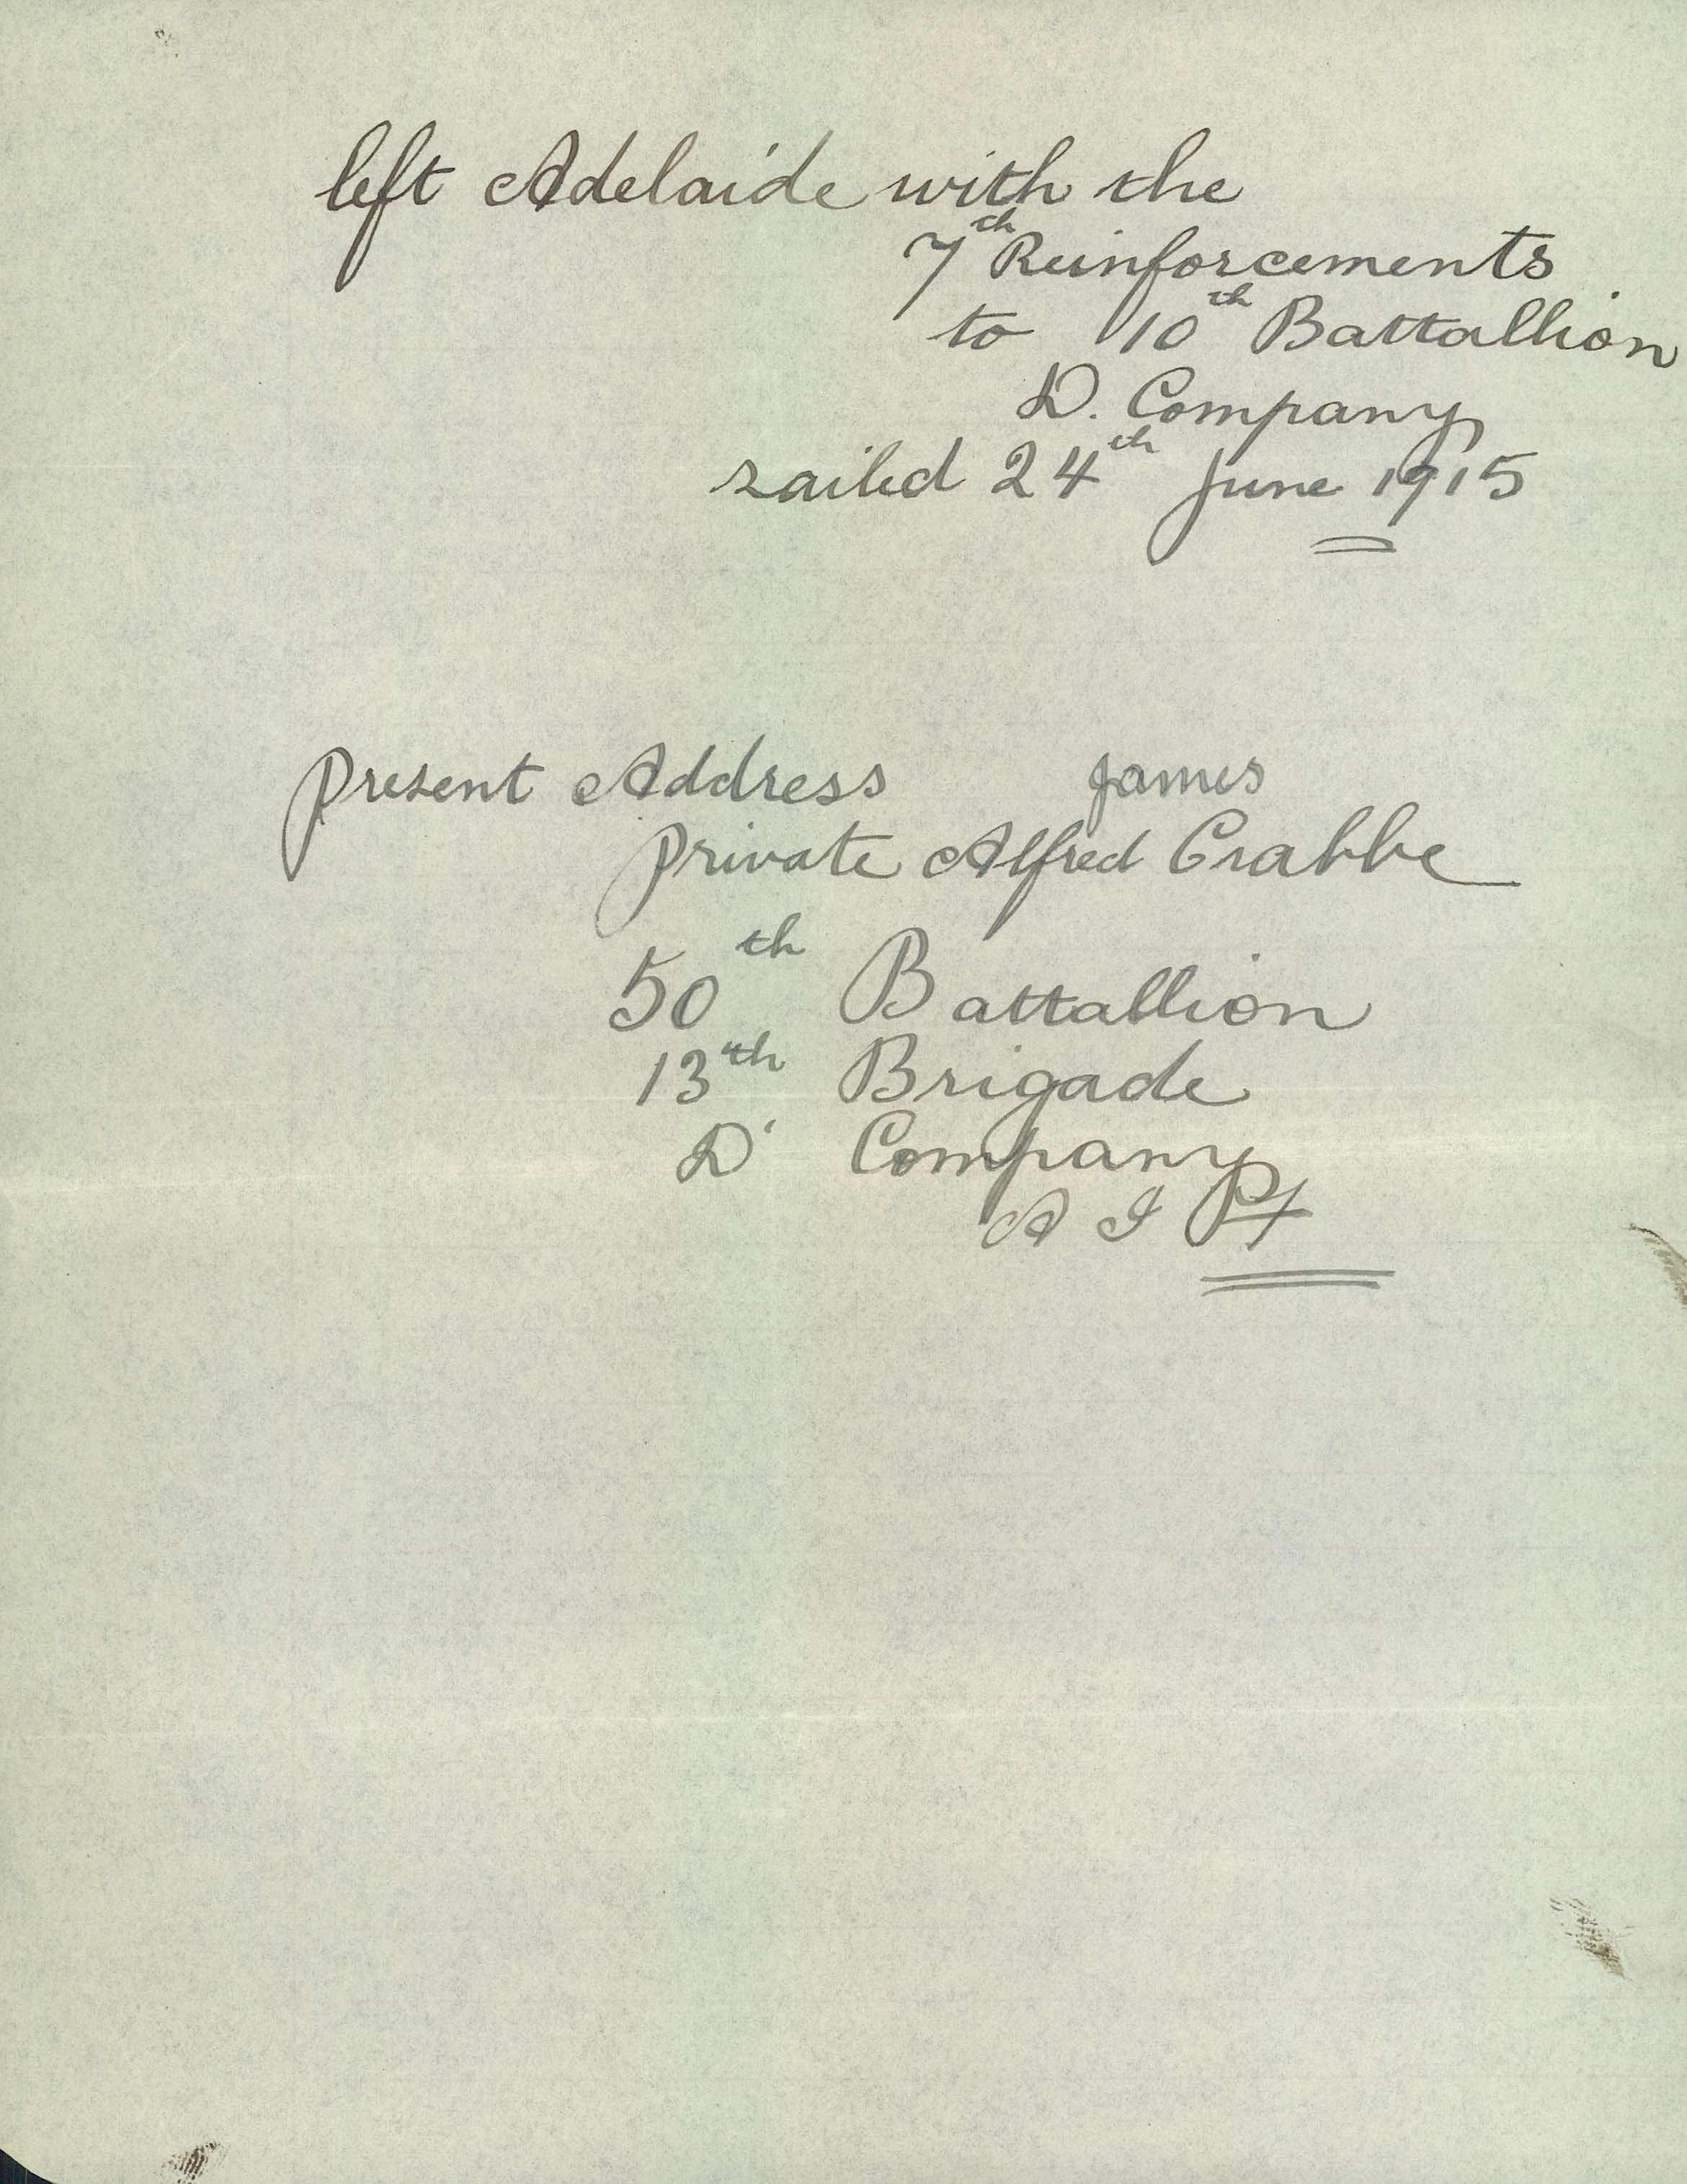 left Adelaide with the
7th Reinforcements
to 10th Battallion
D. Company
sailed 24th June 1915
Present Address James
Private Alfred Crabbe
50th Battallion
13th Brigade
D' Company
A I F